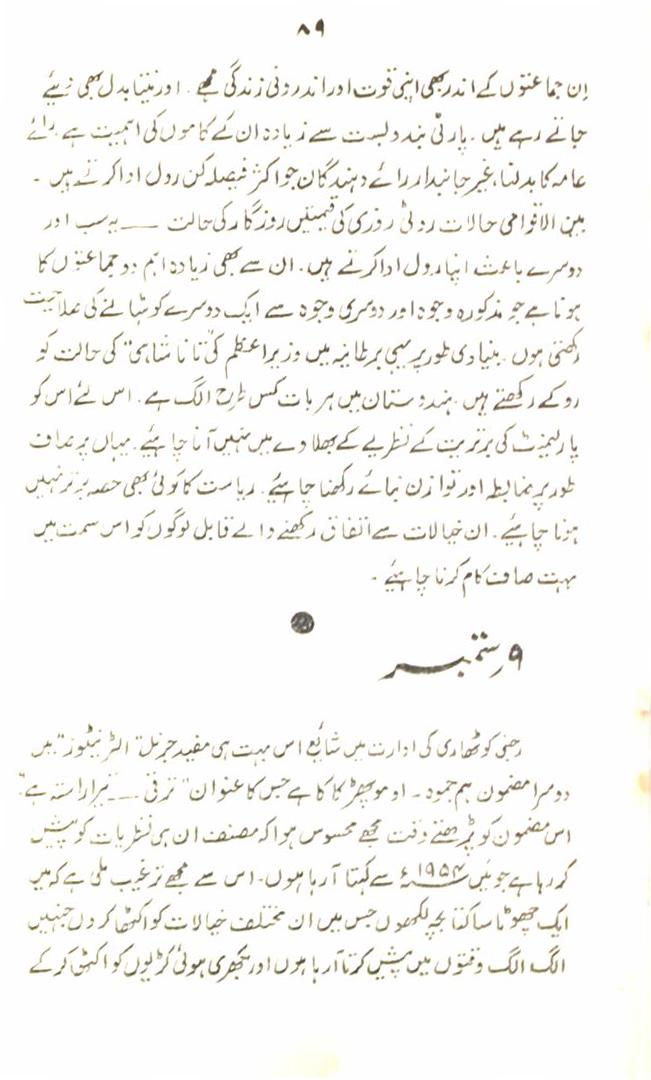 ۸۹
اِن جماعتوں کے اندر بھی اپنی قوت اور اندرونی زندگی ہے۔ اور نیتا بدل بھی دیئے
جاتے رہے ہیں۔ پارٹی بندوبست سے زیادہ ان کے کاموں کی اہمیت ہے۔ رائے
عامہ کا بدلنا، غیر جانبدار رائے دہندگان جو اکثر فیصلہ کن رول ادا کرتے ہیں۔
بین الاقوامی حالات روٹی روزی کی قیمتیں روزگار کی حالت — یہ سب اور
دوسرے باعث اپنا رول ادا کرتے ہیں۔ ان سے بھی زیادہ اہم دو جماعتوں کا
ہونا ہے جو مذکورہ وجوہ اور دوسری وجوہ سے ایک دوسرے کو ہٹانے کی صلاحیت
رکھتی ہوں۔ بنیادی طور پر یہی برطانیہ میں وزیر اعظم کی "تانا شاہی" کی حالت کو
روکے رکھتے ہیں۔ ہندوستان میں ہر بات کس طرح الگ ہے۔ اس لئے اس کو
پارلیمنٹ کی برتریت کے نظریے کے بھلاوے میں نہیں آنا چاہیئے۔ یہاں پر صاف
طور پر ضابطہ اور توازن بنائے رکھنا چاہیئے۔ ریاست کا کوئی بھی حصہ برتر نہیں
ہونا چاہیئے۔ ان خیالات سے اتفاق رکھنے والے قابل لوگوں کو اس سمت میں
بہت صاف کام کرنا چاہیئے۔
۹ ستمبر
رجنی کوٹھاری کی ادارت میں شائع اس بہت ہی مفید جرنل "الٹرنیٹوز" میں
دوسرا مضمون ہم جموہ۔ اومو کا ہے جس کا عنوان "ترقی — تیسرا راستہ ہے"
اس مضمون کو پڑھتے وقت مجھے محسوس ہوا کہ مصنف ان ہی نظریات کو پیش
کر رہا ہے جو میں ۱۹۵۴ء سے کہتا آ رہا ہوں۔ اس سے مجھے ترغیب ملی ہے کہ میں
ایک چھوٹا سا کتابچہ لکھوں جس میں ان مختلف خیالات کو اکٹھا کر دوں جنہیں
الگ الگ وقتوں میں پیش کرتا آ رہا ہوں اور بکھری ہوئی کڑیوں کو اکٹھی کر کے